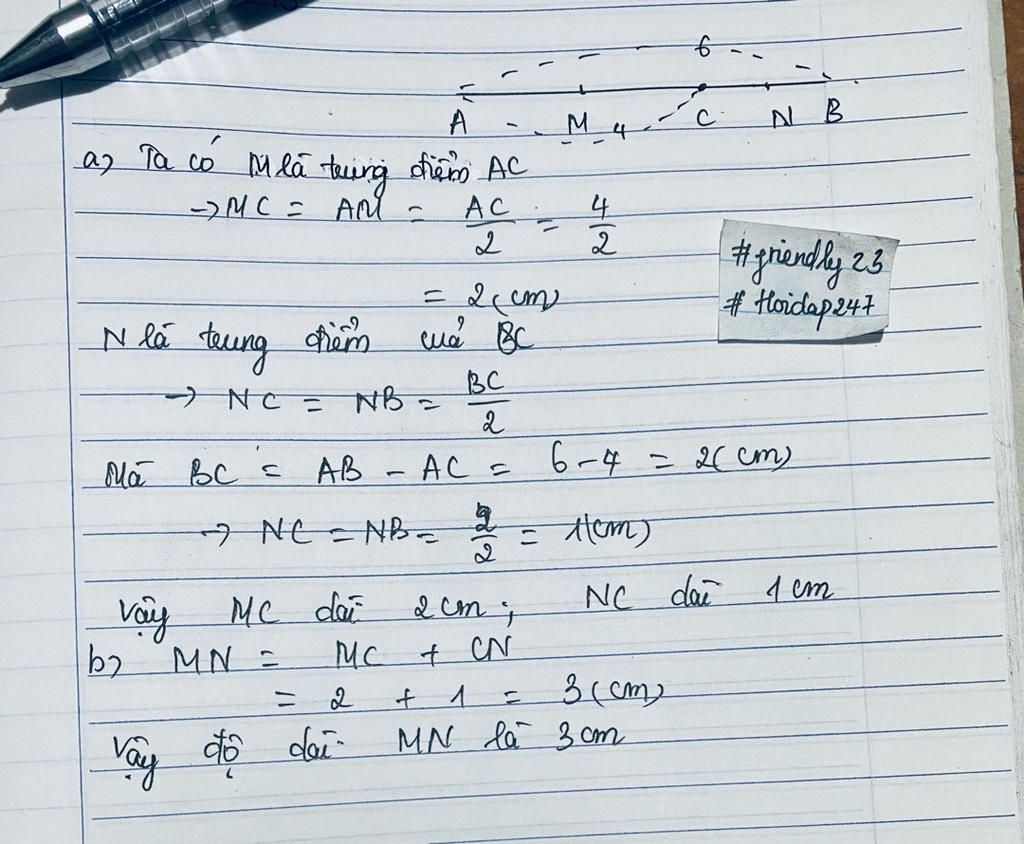 6
A M 4 C N B
a) Ta có M là trung điểm AC
→ MC = AM = AC/2 = 4/2
= 2 (cm)
#friendly23
# Hoidap247
N là trung điểm của BC
→ NC = NB = BC/2
Mà BC = AB - AC = 6 - 4 = 2 (cm)
→ NC = NB = 2/2 = 1 (cm)
Vậy MC dài 2cm; NC dài 1cm
b) MN = MC + CN
= 2 + 1 = 3 (cm)
Vậy độ dài MN là 3cm